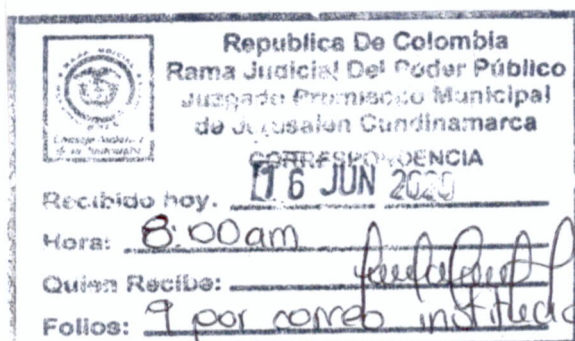 Republica De Colombia
Rama Judicial Del Poder Público
Juzgado Promiscuo Municipal
de Jerusalen Cundinamarca
CORRESPONDENCIA
Recibido hoy. 16 JUN 2020
Hora: 8:00am
Quien Recibe:
Folios: 9 por correo